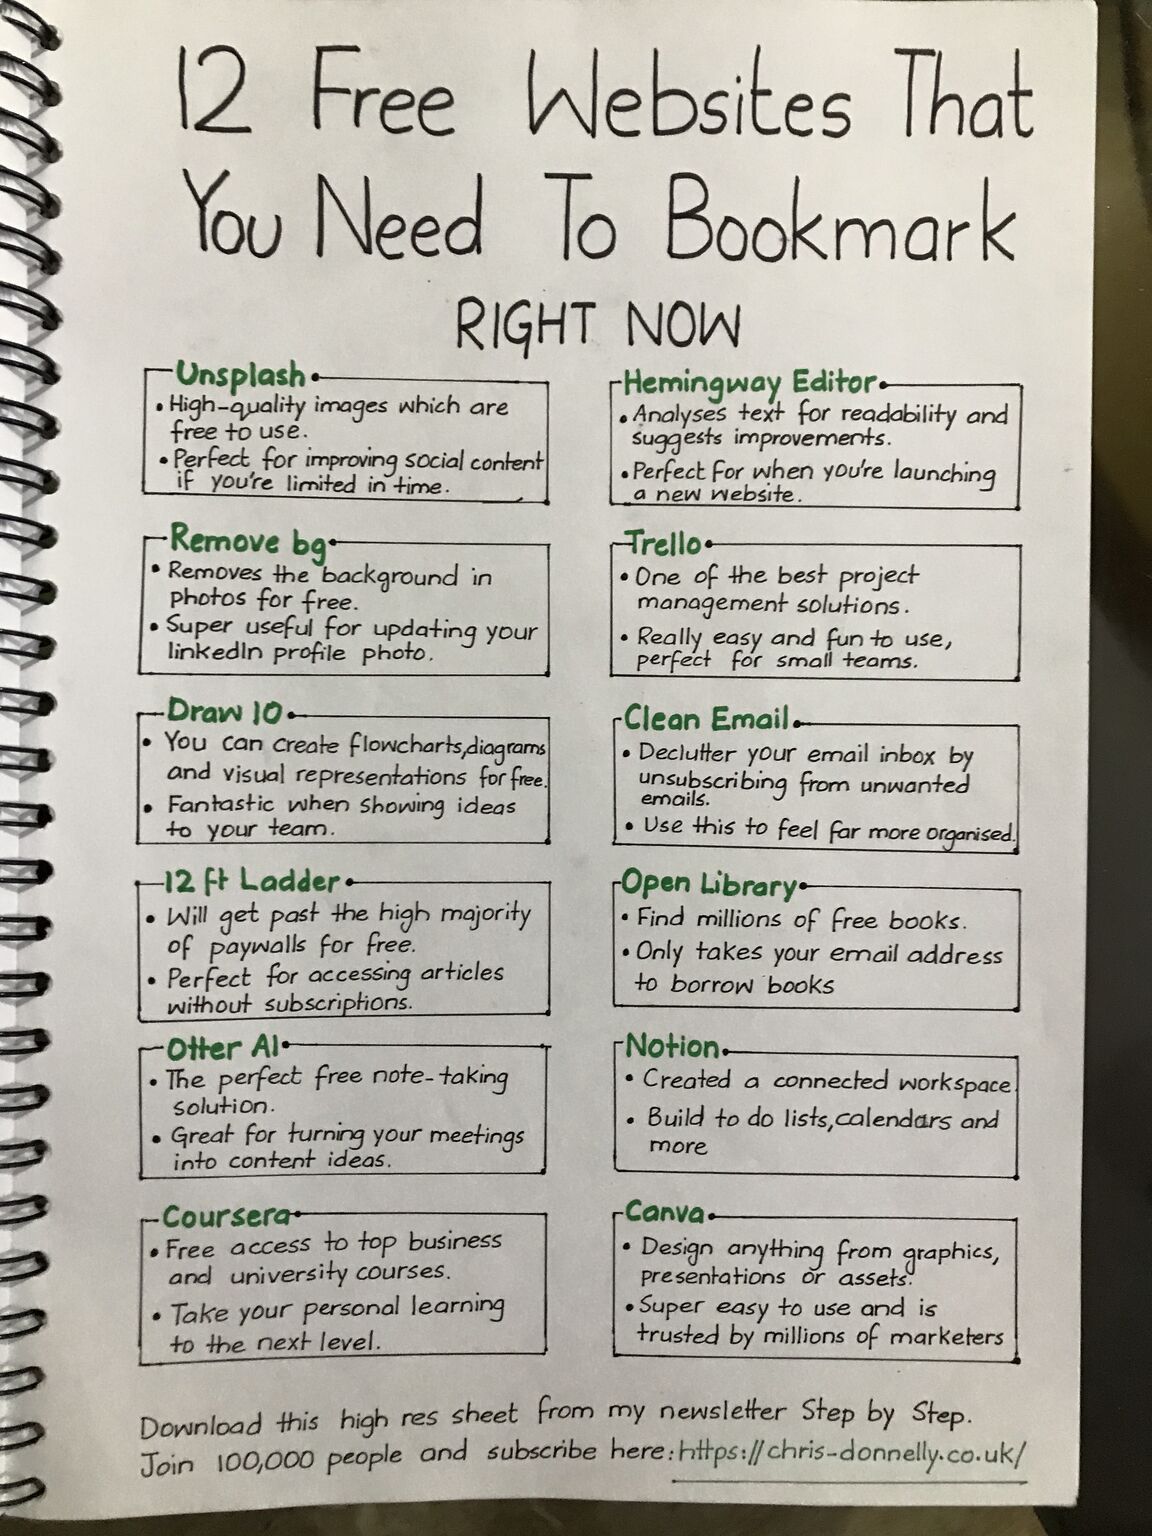 12 Free Websites That
You Need To Bookmark
RIGHT NOW
Unsplash
• High-quality images which are
free to use.
• Perfect for improving social content
if you're limited in time.
Remove bg
• Removes the background in
photos for free.
• Super useful for updating your
linkedIn profile photo.
Draw IO
• You can create flowcharts,diagrams
and visual representations for free.
• Fantastic when showing ideas
to your team.
12 ft Ladder
• Will get past the high majority
of paywalls for free.
• Perfect for accessing articles
without subscriptions.
Otter AI
• The perfect free note-taking
solution.
• Great for turning your meetings
into content ideas.
Coursera
• Free access to top business
and university courses.
• Take your personal learning
to the next level.
Hemingway Editor
• Analyses text for readability and
suggests improvements.
• Perfect for when you're launching
a new website.
Trello
• One of the best project
management solutions.
• Really easy and fun to use,
perfect for small teams.
Clean Email
• Declutter your email inbox by
unsubscribing from unwanted
emails.
• Use this to feel far more organised.
Open Library
• Find millions of free books.
• Only takes your email address
to borrow books
Notion
• Created a connected workspace.
• Build to do lists,calendars and
more
Canva
• Design anything from graphics,
presentations or assets.
• Super easy to use and is
trusted by millions of marketers
Download this high res sheet from my newsletter Step by Step.
Join 100,000 people and subscribe here: https://chris-donnelly.co.uk/